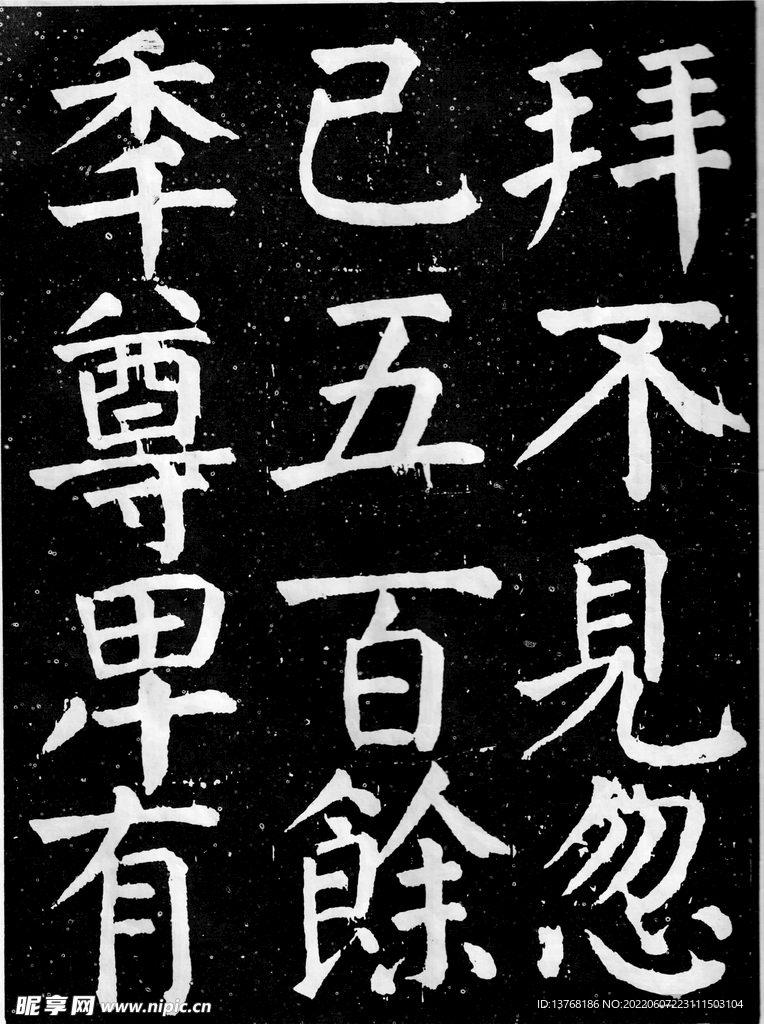 拜不見忽
已五百餘
秊尊卑有
昵享网 www.nipic.cn
ID:13768186 NO:20220607223111503104